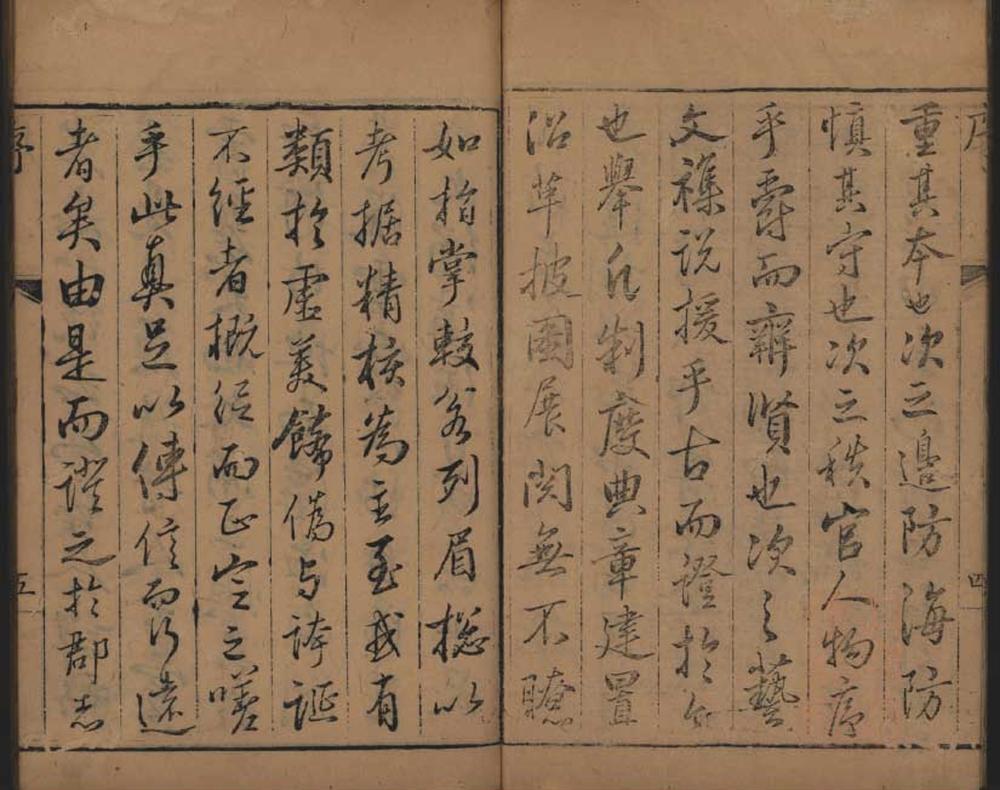 序 四
重其本也次之邊防海防
慎其守也次之秩官人物序
乎爵而辨賢也次之藝
文襍説援乎古而證於今
也舉凡制度典章建置
沿革披圖展閱無不瞭
如指掌較若列眉摠以
考据精核為主至或有
類於虛美餙偽与誇誕
不經者概從而正定之嗟
乎此真足以傳信而行遠
者矣由是而證之於郡志
序 五